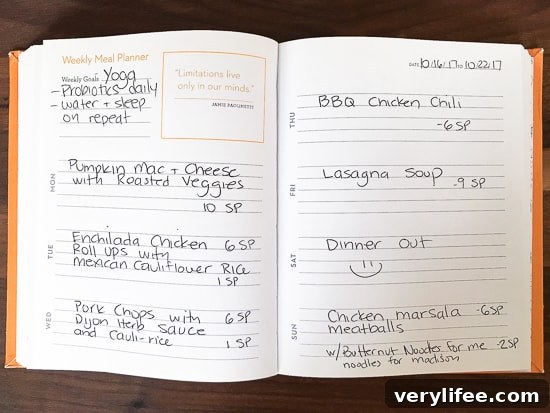 Weekly Meal Planner
Weekly Goals Yoga
- Probiotics daily
- water + sleep
on repeat
"Limitations live
only in our minds."
JAMIE PAOLINETTI
MON
Pumpkin Mac + Cheese
with Roasted Veggies
10 SP
TUE
Enchilada Chicken 6 SP
Roll ups with
Mexican Cauliflower Rice
1 SP
WED
Pork Chops with 6 SP
Dijon Herb Sauce
and Cauli-rice 1 SP
DATE 10/16/17 TO 10/22/17
THU
BBQ Chicken Chili
-6 SP
FRI
Lasagna Soup -9 SP
SAT
Dinner Out
SUN
Chicken marsala -6SP
meatballs
w/ Butternut Noodles for me -2SP
noodles for madison
verylifee.com